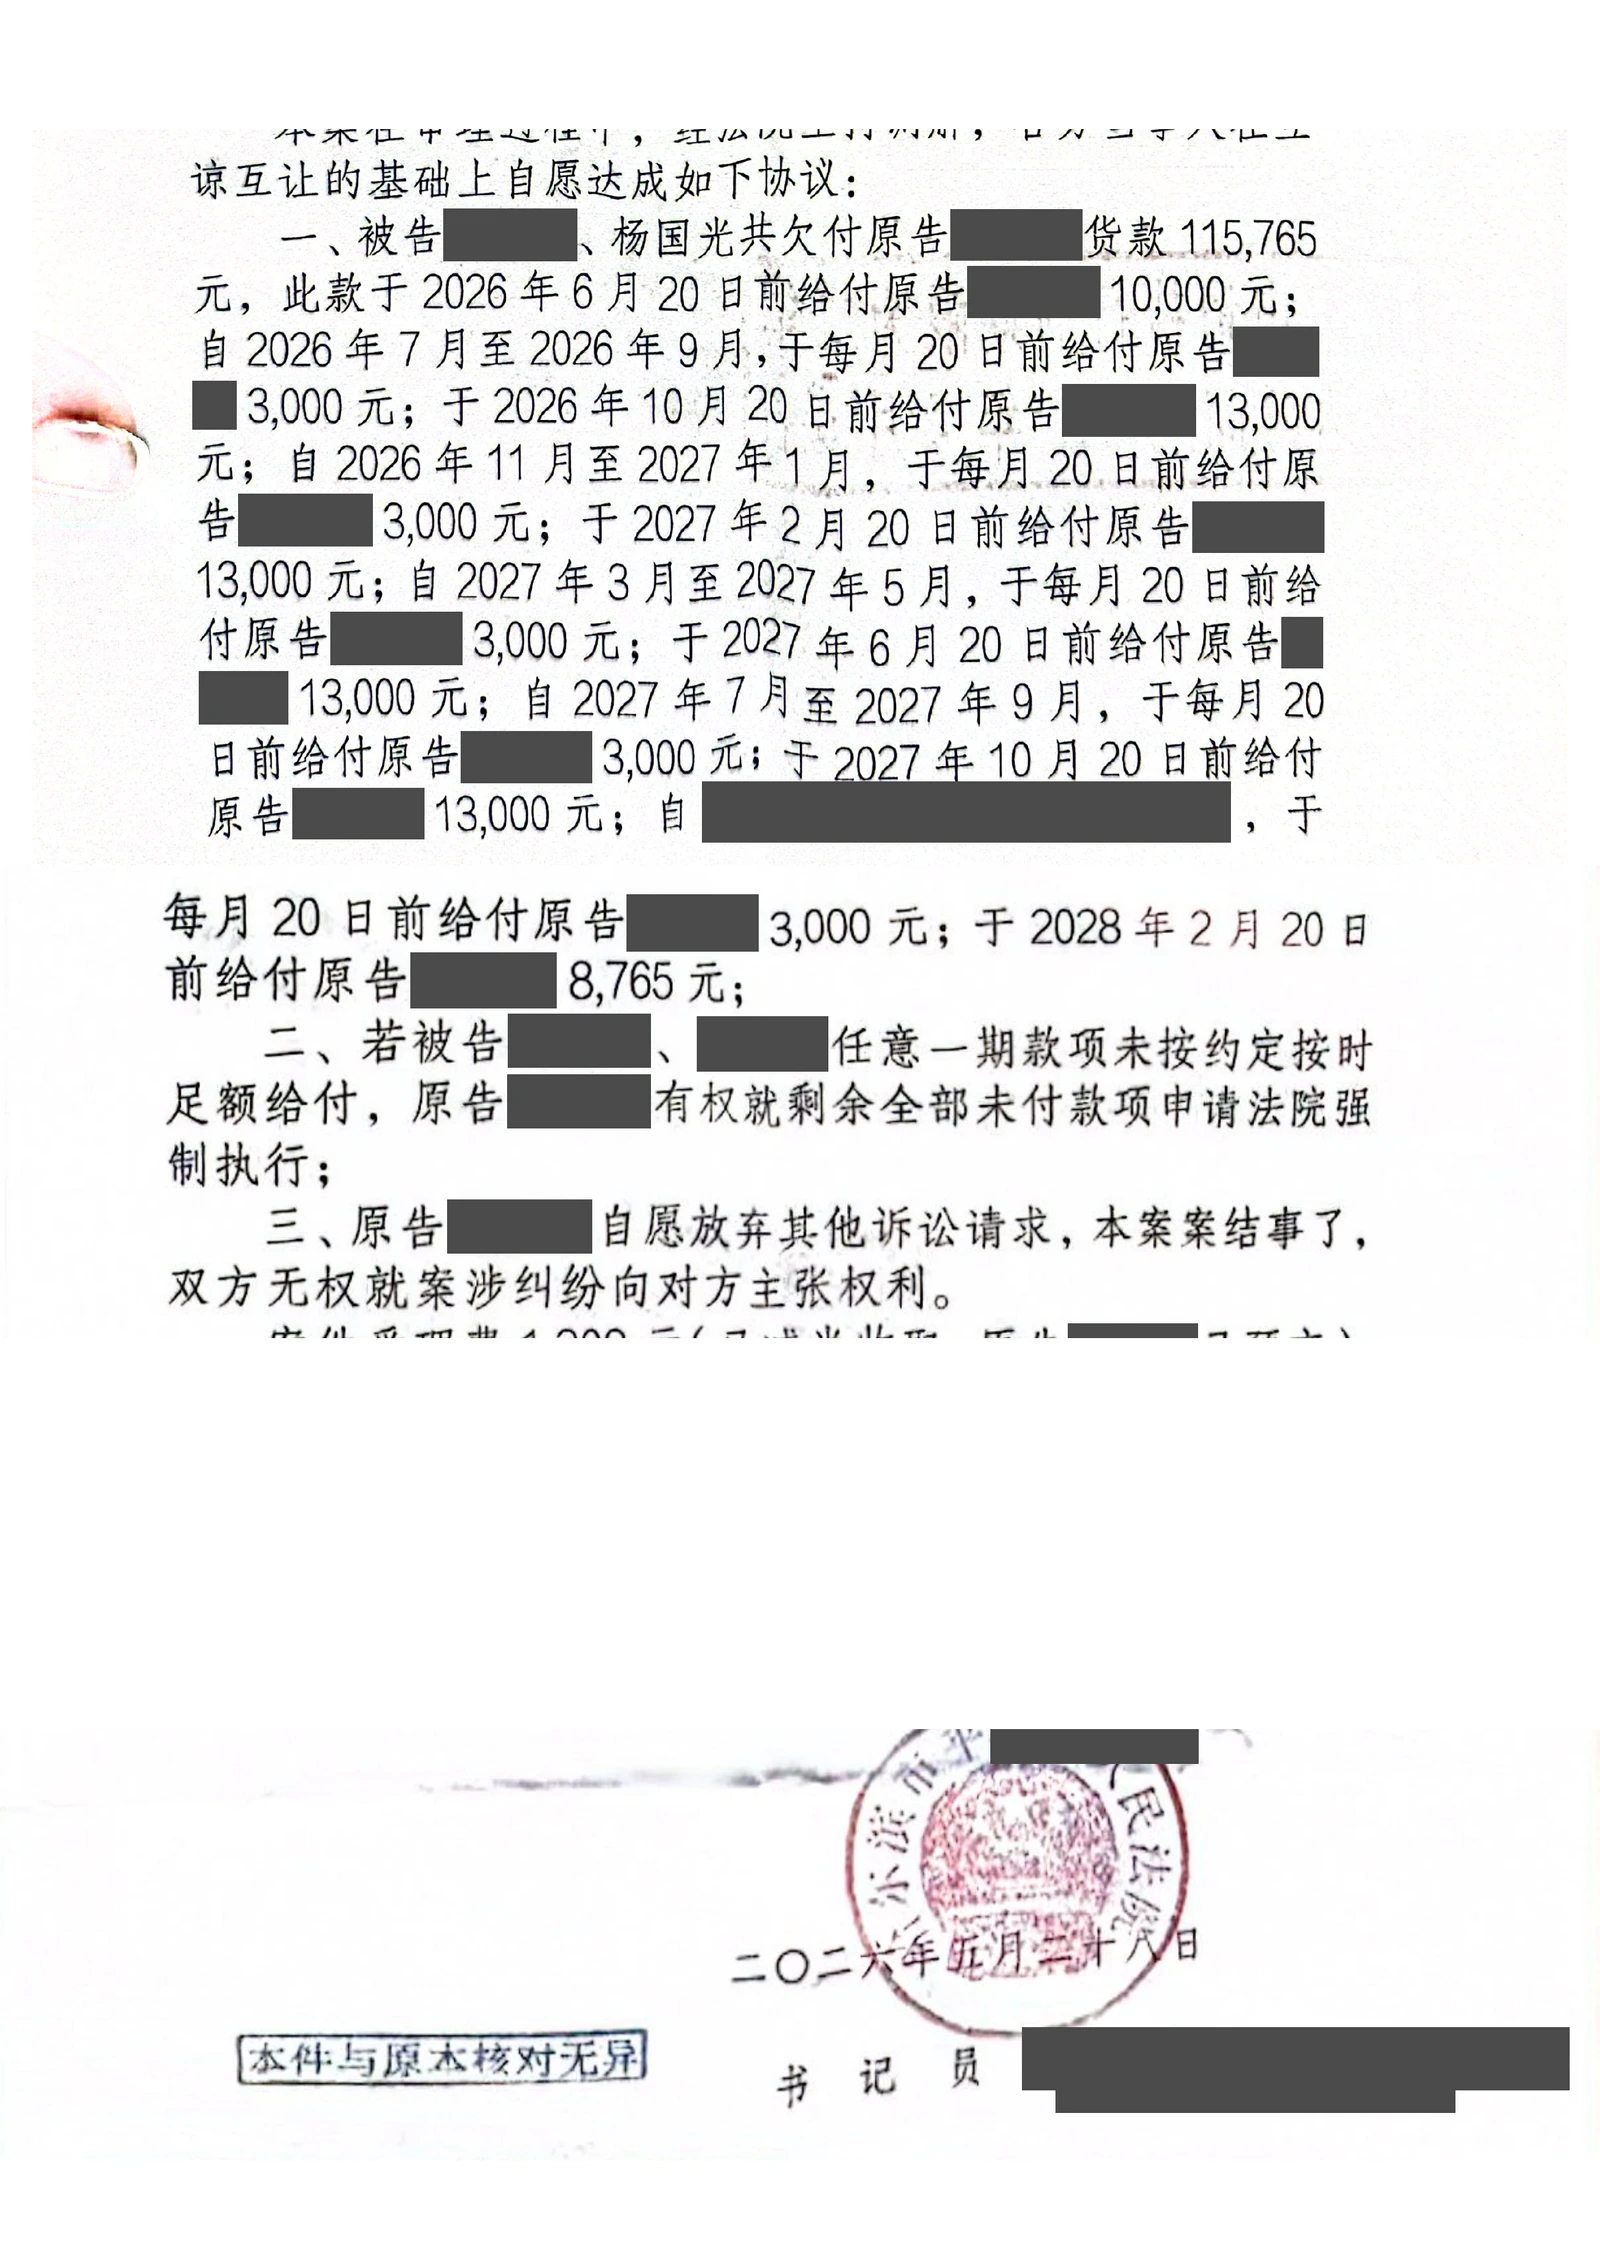 本案在审理过程中，经法院主持调解，各方当事人在互
谅互让的基础上自愿达成如下协议：
一、被告、杨国光共欠付原告货款 115,765
元，此款于 2026 年 6 月 20 日前给付原告 10,000 元；
自 2026 年 7 月至 2026 年 9 月，于每月 20 日前给付原告
3,000 元；于 2026 年 10 月 20 日前给付原告 13,000
元；自 2026 年 11 月至 2027 年 1 月，于每月 20 日前给付原
告 3,000 元；于 2027 年 2 月 20 日前给付原告
13,000 元；自 2027 年 3 月至 2027 年 5 月，于每月 20 日前给
付原告 3,000 元；于 2027 年 6 月 20 日前给付原告
13,000 元；自 2027 年 7 月至 2027 年 9 月，于每月 20
日前给付原告 3,000 元；于 2027 年 10 月 20 日前给付
原告 13,000 元；自 ，于
每月 20 日前给付原告 3,000 元；于 2028 年 2 月 20 日
前给付原告 8,765 元；
二、若被告、任意一期款项未按约定按时
足额给付，原告有权就剩余全部未付款项申请法院强
制执行；
三、原告自愿放弃其他诉讼请求，本案案结事了，
双方无权就案涉纠纷向对方主张权利。
案件受理费
尔滨市平 人民法院
二〇二六年五月二十八日
本件与原本核对无异
书 记 员